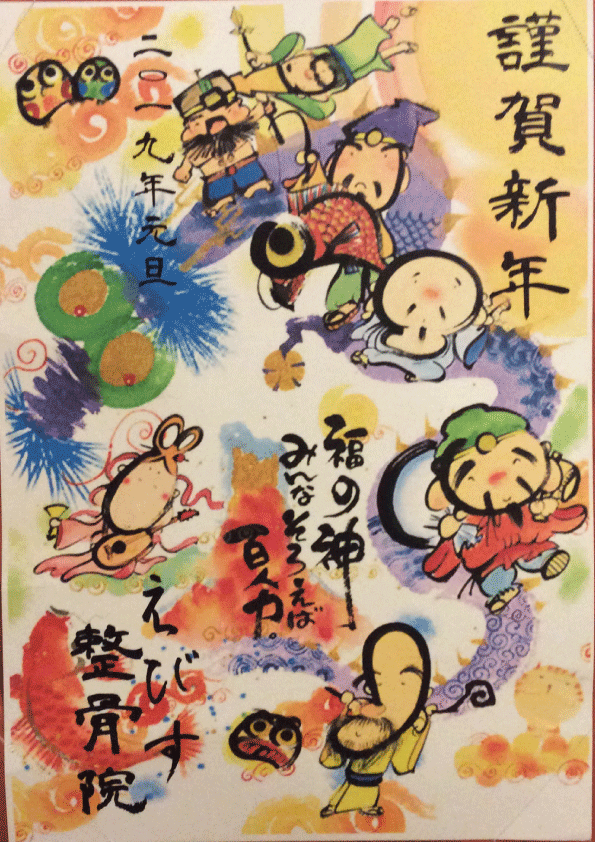 謹賀新年
二〇一九年元旦
福の神
みんなそろえば
百人力。
えびす
整骨院